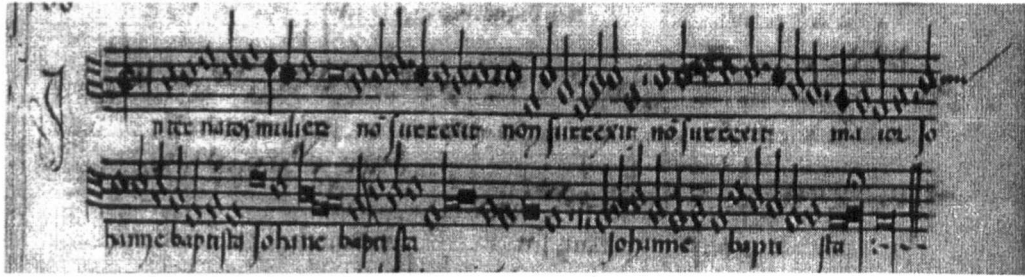 I
nter natos mulierẽ nõ surrexit non surrexit nõ surrexit ma ior Jo
hanne baptista Johãne bapti sta Johanne bapti sta